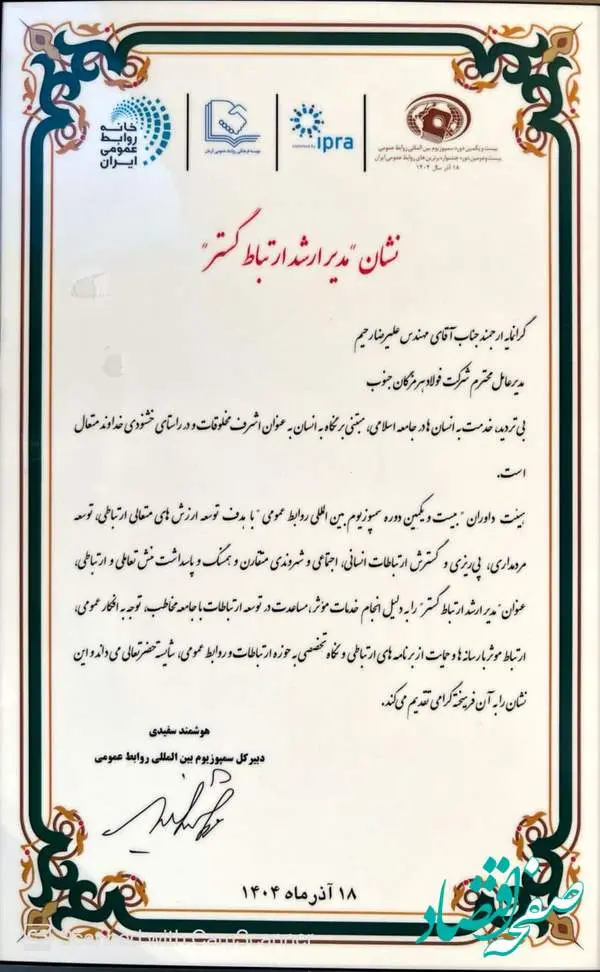 خانه
روابط
عمومی
ایران
موسسه فرهنگی روابط عمومی آرمان
ipra
بیست و یکمین دوره سمپوزیوم بین المللی روابط عمومی
بیست و دومین دوره جشنواره برترین های روابط عمومی ایران
۱۸ آذر سال ۱۴۰۴
نشان "مدیر ارشد ارتباط گستر"
گرانمایه ارجمند جناب آقای مهندس علیرضا رحیم
مدیرعامل محترم شرکت فولاد هرمزگان جنوب
بی تردید، خدمت به انسان ها در جامعه اسلامی، مبتنی بر نگاه به انسان به عنوان اشرف مخلوقات و در راستای خشنودی خداوند متعال
است.
هیئت داوران "بیست و یکمین دوره سمپوزیوم بین المللی روابط عمومی" با هدف توسعه ارزش های متعالی ارتباطی، توسعه
مردمداری، پی ریزی و گسترش ارتباطات انسانی، اجتماعی و شهروندی متقارن و همسنگ و پاسداشت منش تعاملی و ارتباطی،
عنوان "مدیر ارشد ارتباط گستر" را به دلیل انجام خدمات مؤثر، مساعدت در توسعه ارتباطات با جامعه مخاطب، توجه به افکار عمومی،
ارتباط موثر با رسانه ها و حمایت از برنامه های ارتباطی و نگاه تخصصی به حوزه ارتباطات و روابط عمومی، شایسته حضرتعالی می داند و این
نشان را به آن فرهیخته گرامی تقدیم می کند.
هوشمند سفیدی
دبیر کل سمپوزیوم بین المللی روابط عمومی
۱۸ آذر ماه ۱۴۰۴
صفحه اقتصاد
Scanned with CamScanner